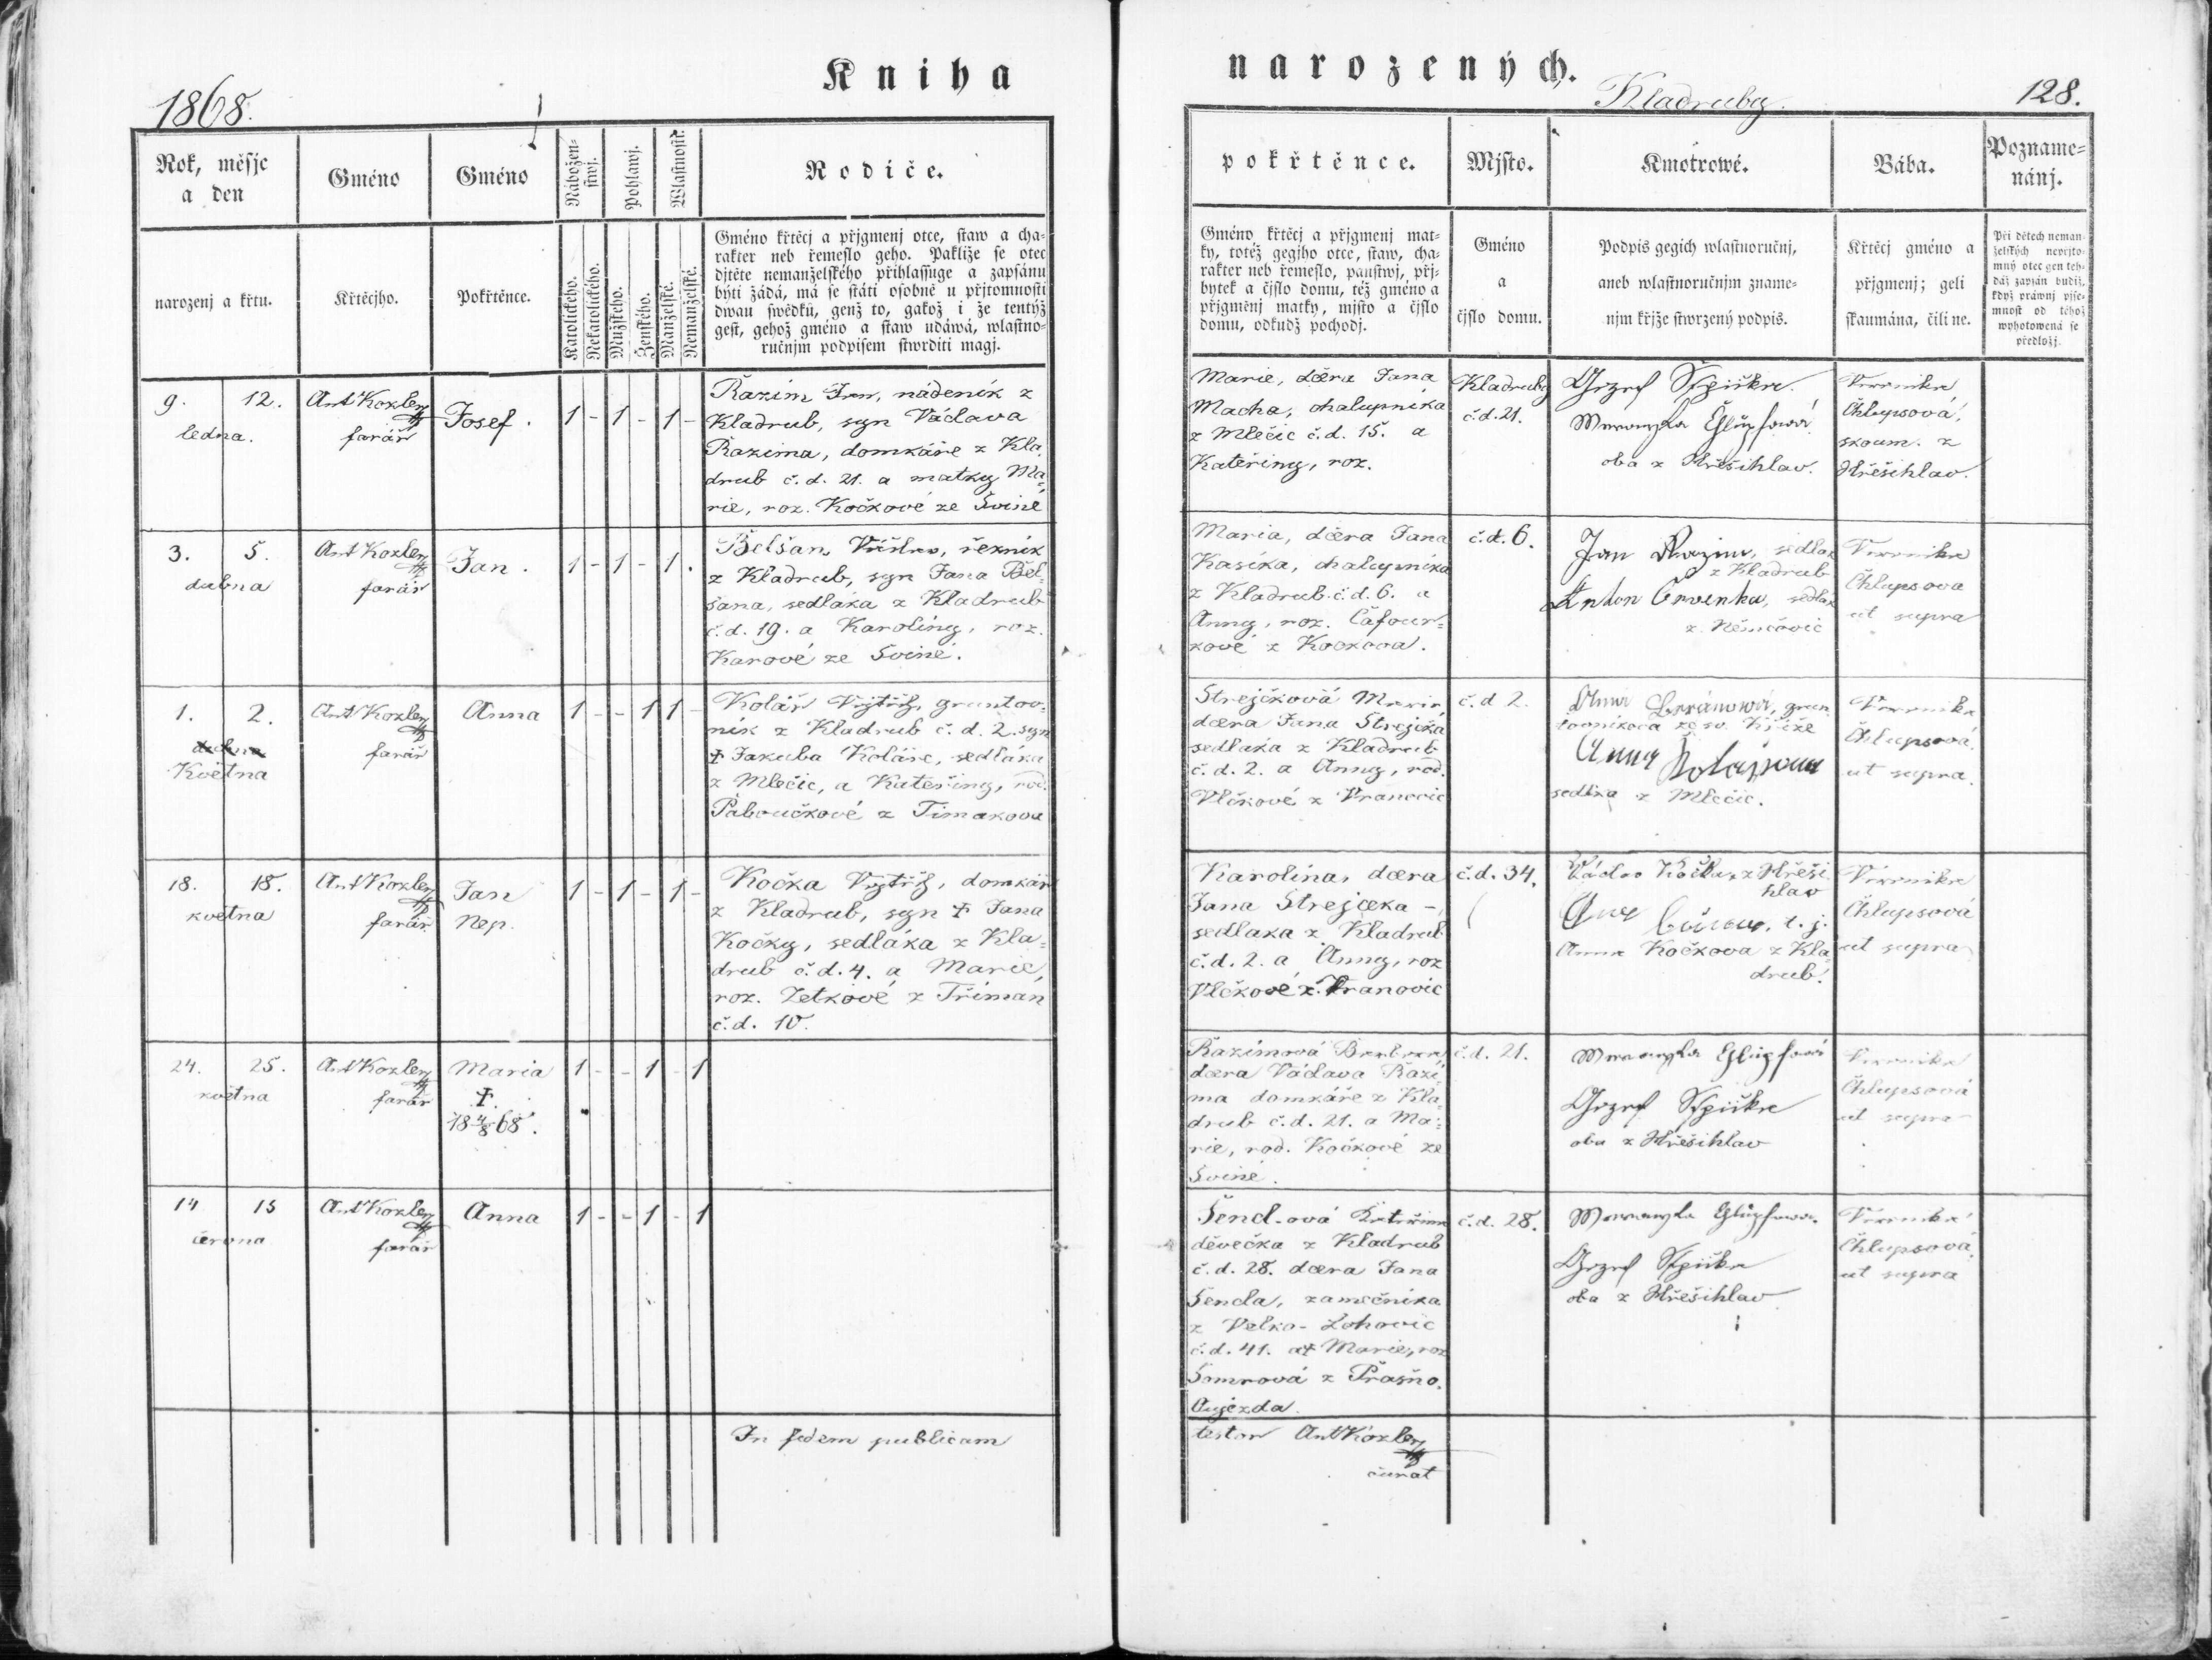 Kniha
narozených.
1868.
Kladruby.
128.
Rok, měsíc
a den
Gméno
Gméno
Nábožen-
stwj.
Pohlawj.
Wlastnost.
Rodiče.
narozenj a křtu.
Křtěcjho.
Pokřtěnce.
Katolického.
Nekatolického.
Mužského.
Ženského.
Manželské.
Nemanželské.
Gméno křtěcj a přjgmenj otce, staw a cha-
rakter neb řemeslo geho. Pakliže se otec
djtěte nemanželského přihlassuge a zapsánu
býti žádá, má se státi osobně u přjtomnosti
dwau swědků, genž to, gakož i že tentýž
gest, gehož gméno a staw udáwá, wlastno-
ručnjm podpisem stwrditi magj.
pokřtěnce.
Mjsto.
Kmotrowé.
Bába.
Pozname-
nánj.
Gméno křtěcj a přjgmenj mat-
ky, totéž gegjho otce, staw, cha-
rakter neb řemeslo, panstwj, přj-
bytek a čjslo domu, též gméno a
přjgměnj matky, mjsto a čjslo
domu, odkudž pochodj.
Gméno
a
čjslo domu.
Podpis gegich wlastnoručnj,
aneb wlastnoručnjm zname-
njm křjže stwrzený podpis.
Křtěcj gméno a
přjgmenj; geli
skaumána, čili ne.
Při dětech neman-
želských nepřjto-
mný otec gen teh-
dáž zapsán budiž,
když práwnj pjse-
mnost od téhož
wyhotowená se
předložj.
9. 12.
ledna.
Ant Kozler
farář
Josef.
1 - 1 - 1 -
Razim Jan, nádeník z
Kladrub, syn Václava
Razima, domkáře z Kla-
drub č.d. 21. a matky Ma-
rie, roz. Kočkové ze Sviné
Marie, dcera Jana
Macha, chalupníka
z Mlečic č.d. 15. a
Kateřiny, roz.
Kladruby
č.d. 21.
oba z Hřešihlav.
Veronika
Chlupsová,
skoum. z
Hřešihlav.
3. 5.
dubna
Ant Kozler
farář
Jan.
1 - 1 - 1.
Belšan Václav, řezník
z Kladrub, syn Jana Bel-
šana, sedláka z Kladrub
č.d. 19. a Karolíny, roz.
Karové ze Sviné.
Maria, dcera Jana
Kasíka, chalupníka
z Kladrub č.d. 6. a
Anny, roz. Čafour-
kové z Kockova.
č.d. 6.
Jan Razim, sedlák
z Kladrub
Anton Červenka, sedlák
z Němčovic
Veronika
Chlupsova
ut supra
1. 2.
Května
Ant Kozler
farář
Anna
1 - - 1 1 -
Kolář Vojtěch, gruntov-
ník z Kladrub č.d. 2. syn
† Jakuba Koláře, sedláka
z Mlečic, a Kateřiny, rod.
Paboučkové z Timakova
Strejčková Marie,
dcera Jana Strejčka
sedláka z Kladrub
č.d. 2. a Anny, rod.
Vlčkové z Vranovic
č.d. 2.
Anna Beránová, grun-
tovníkova ze sv. Kříže
Anna Kolářowa
sedlka z Mlečic.
Veronika
Chlupsová.
ut supra.
18. 18.
května
Ant Kozler
farář
Jan
Nep.
1 - 1 - 1 -
Kočka Vojtěch, domkář
z Kladrub, syn † Jana
Kočky, sedláka z Kla-
drub č.d. 4. a Marie,
roz. Zetkové z Tříman
č.d. 10.
Karolina, dcera
Jana Strejčka -
sedláka z Kladrub
č.d. 2. a Anny, roz
Vlčkové z Vranovic
č.d. 34.
Václav Kočka, z Hřeši-
hlav
t. j.
Anna Kočkova z Kla-
drub.
Veronika
Chlupsová
ut supra
24. 25.
května
Ant Kozler
farář
Maria
†
18 4/8 68.
1 - - 1 - 1
Razímová Barbora,
dcera Václava Razi-
ma domkáře z Kla-
drub č.d. 21. a Ma-
rie, rod. Kočkové ze
Sviné.
č.d. 21.
oba z Hřešihlav
Veronika
Chlupsová
ut supra
14 15
června
Ant Kozler
farář
Anna
1 - - 1 - 1
Šendová Kateřina
děvečka z Kladrub
č.d. 28. dcera Jana
Šenda, zamečníka
z Velko-Lohovic
č.d. 41. a † Marie, roz
Somrová z Prašno.
Aujezda.
č.d. 28.
oba z Hřešihlav
Veronika
Chlupsová
ut supra
In fidem publicam
testor Ant Kozler
curat